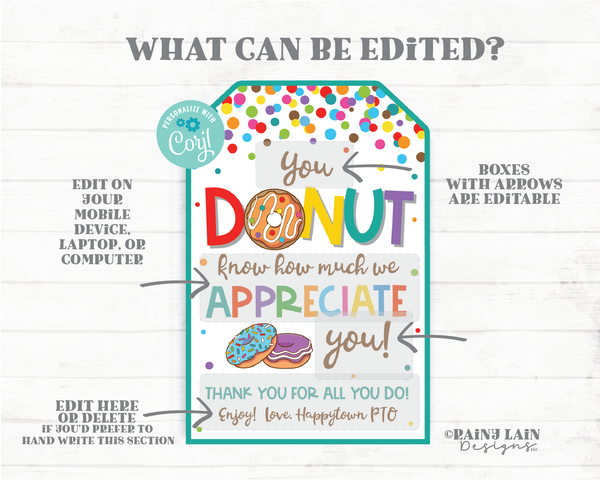 WHAT CAN BE EDITED?
PERSONALIZE WITH
Corjl
You
DONUT
know how much we
APPRECIATE
you!
THANK YOU FOR ALL YOU DO!
Enjoy! Love, Happytown PTO
BOXES
WITH ARROWS
ARE EDITABLE
EDIT ON
YOUR
MOBILE
DEVICE,
LAPTOP, OR
COMPUTER
EDIT HERE
OR DELETE
IF YOU'D PREFER TO
HAND WRITE THIS SECTION
©RAINY LAIN
Designs LLC